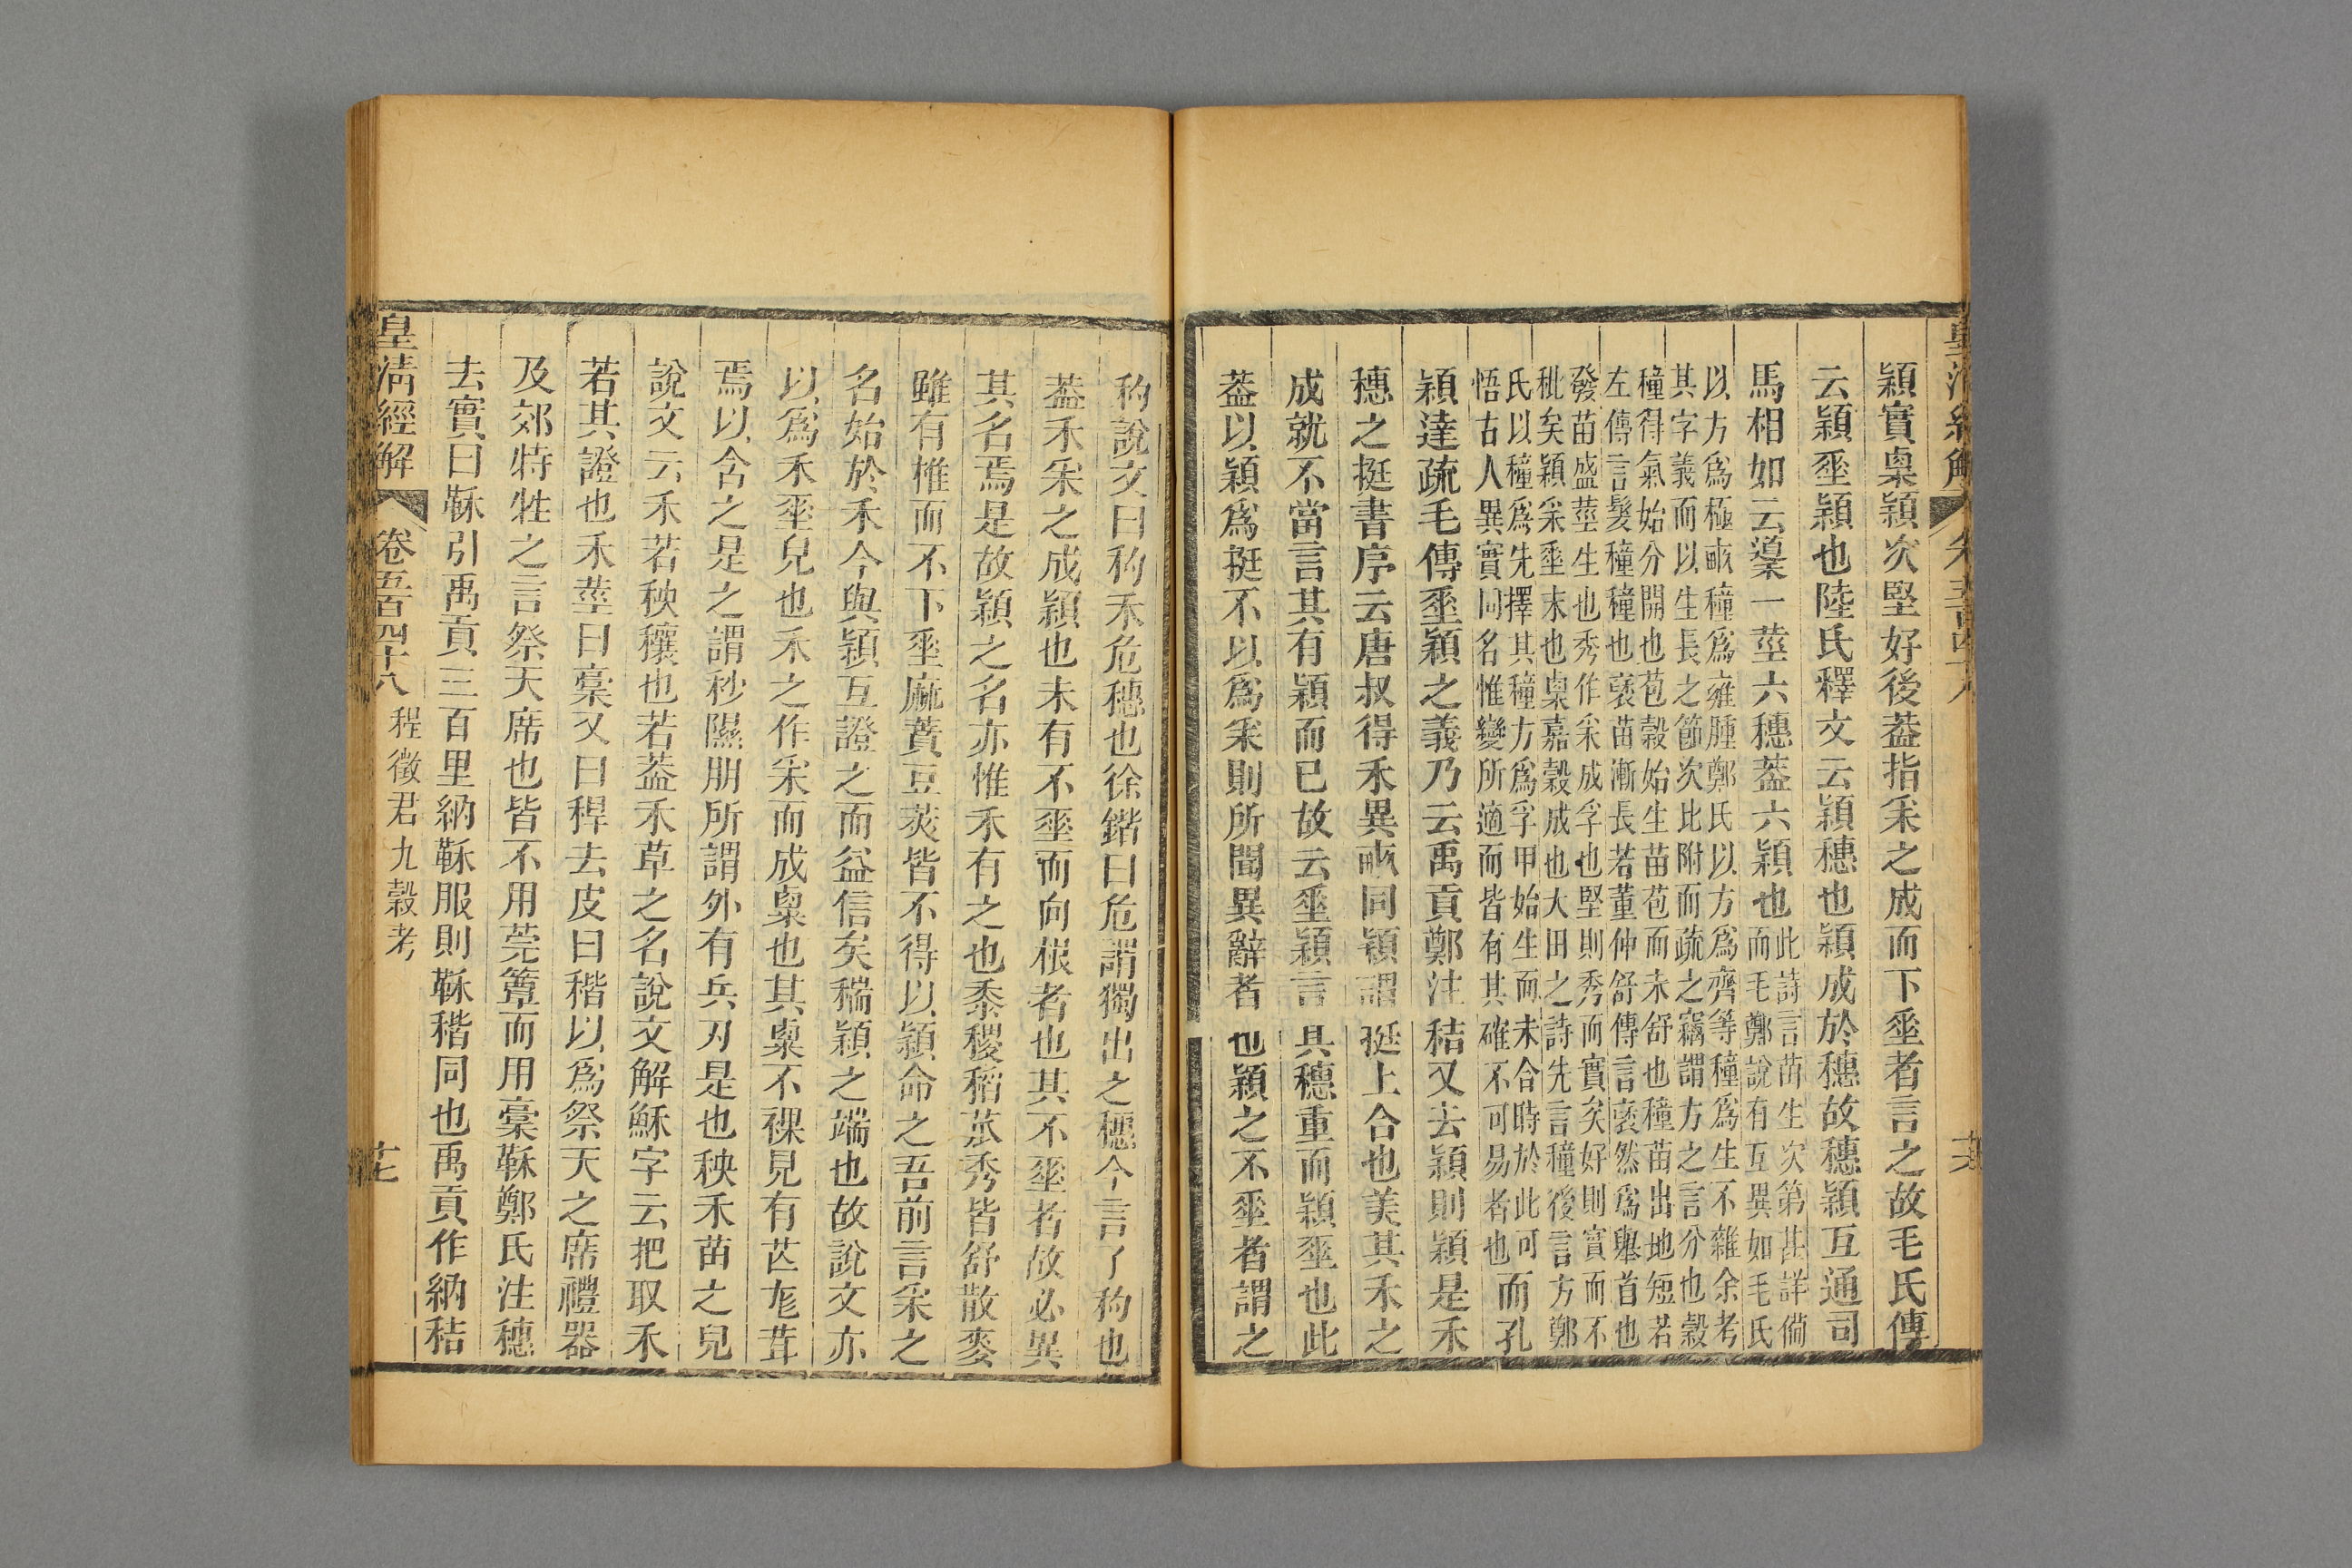 穎實稟穎次堅好後葢指采之成而下埀者言之故毛氏傳
云穎埀穎也陸氏釋文云穎穗也穎成於穗故穗穎互通司
馬相如云䆃一莖六穗葢六穎也此詩言苗生次第甚詳備
而毛鄭說有互異如毛氏
以方爲極畝穜爲雍腫鄭氏以方爲齊等穜爲生不雜余考
其字義而以生長之節次比附而疏之竊謂方之言分也穀
穜得氣始分開也苞穀始生苗苞而未舒也穜苗出地短若
左傳言髮穜穜也褎苗漸長若董仲舒傳言褎然爲舉首也
發苗盛莖生也秀作采成孚也堅則秀而實矣好則實而不
秕矣穎采埀末也稟嘉穀成也大田之詩先言穜後言方鄭
氏以穜爲先擇其穜方爲孚甲始生而未合時於此可
悟古人異實同名惟變所適而皆有其確不可易者也
而孔
穎達疏毛傳埀穎之義乃云禹貢鄭注秸又去穎則穎是禾
穗之挺書序云唐叔得禾異畝同穎謂挺上合也美其禾之
成就不當言其有穎而已故云埀穎言其穗重而穎埀也此
葢以穎爲挺不以爲采則所聞異辭者也穎之不埀者謂之
秱說文曰秱禾危穗也徐鍇曰危謂獨出之穗今言了秱也
葢禾采之成穎也未有不埀而向根者也其不埀者故必異
其名焉是故穎之名亦惟禾有之也黍稷稻苽秀皆舒散麥
雖有椎而不下埀麻蕡豆莢皆不得以穎命之吾前言采之
名始於禾今與穎互證之而益信矣稿穎之端也故說文亦
以爲禾埀皃也禾之作采而成稟也其稟不裸見有芒尨茸
焉以含之是之謂秒隰朋所謂外有兵刃是也秧禾苗之皃
說文云禾若秧穰也若葢禾草之名說文解穌字云把取禾
若其證也禾莖曰稾又曰稈去皮曰稭以爲祭天之席禮器
及郊特牲之言祭天席也皆不用莞簟而用稾鞂鄭氏注穗
去實曰鞂引禹貢三百里納鞂服則鞂稭同也禹貢作納秸
皇淸經解
卷五百四十八
程徵君九穀考